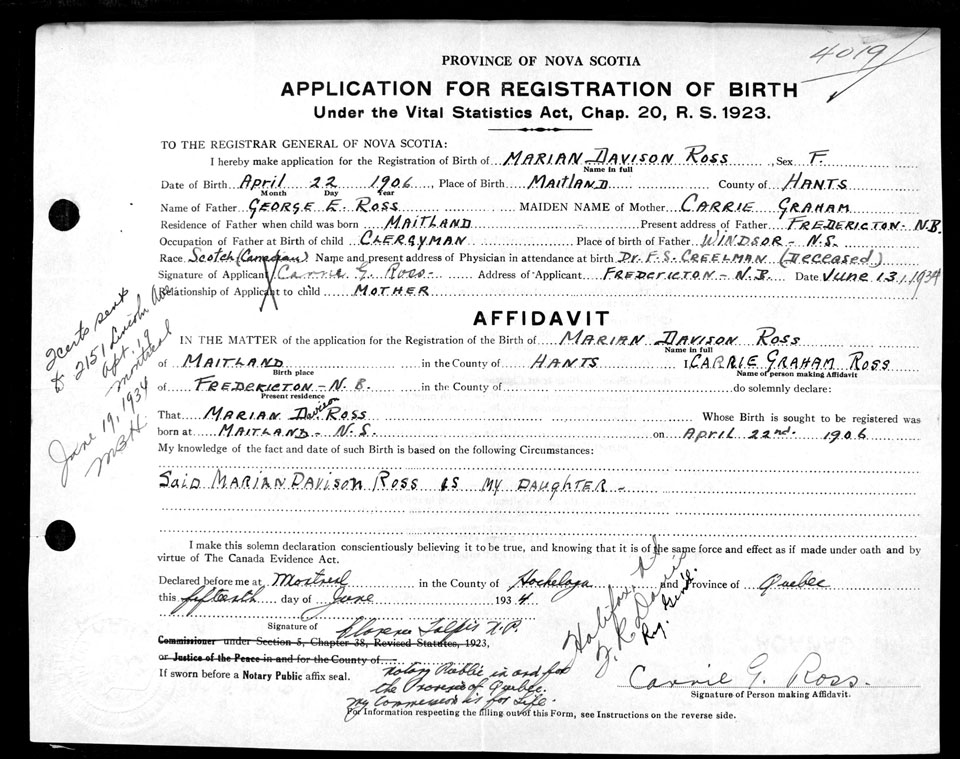 4019
PROVINCE OF NOVA SCOTIA
APPLICATION FOR REGISTRATION OF BIRTH
Under the Vital Statistics Act, Chap. 20, R. S. 1923.
TO THE REGISTRAR GENERAL OF NOVA SCOTIA:
I hereby make application for the Registration of Birth of MARIAN DAVISON ROSS, Sex F.
Name in full
Date of Birth April 22 1906, Place of Birth MAITLAND County of HANTS
Month Day Year
Name of Father GEORGE E. ROSS MAIDEN NAME of Mother CARRIE GRAHAM
Residence of Father when child was born MAITLAND Present address of Father FREDERICTON - N.B.
Occupation of Father at Birth of child CLERGYMAN Place of birth of Father WINDSOR - N.S.
Race Scotch (Canadian) Name and present address of Physician in attendance at birth Dr. F. S. CREELMAN (Deceased)
Signature of Applicant Carrie G. Ross- Address of Applicant FREDERICTON - N.B. Date June 13, 1934
Relationship of Applicant to child MOTHER
2 certs sent
to 2151 Lincoln Ave
Apt. 19
Montreal
June 19, 1934
MBH
AFFIDAVIT
IN THE MATTER of the application for the Registration of the Birth of MARIAN DAVISON ROSS
Name in full
of MAITLAND in the County of HANTS I, CARRIE GRAHAM ROSS
Birth place Name of person making Affidavit
of FREDERICTON - N.B. in the County of do solemnly declare:
Present residence
That MARIAN Davison ROSS Whose Birth is sought to be registered was
born at MAITLAND - N.S. on April 22nd. 1906
My knowledge of the fact and date of such Birth is based on the following Circumstances:
SAID MARIAN DAVISON ROSS IS MY DAUGHTER -
I make this solemn declaration conscientiously believing it to be true, and knowing that it is of the same force and effect as if made under oath and by
virtue of The Canada Evidence Act.
Declared before me at Montreal in the County of Hochelaga and Province of Quebec
this fifteenth day of June 1934
Halifax,
Davis
Reg. Gen'l.
Signature of Florence N.P.
Commissioner under Section 5, Chapter 38, Revised Statutes, 1923,
or Justice of the Peace in and for the County of
If sworn before a Notary Public affix seal.
Notary Public in and for
the Province of Quebec.
My Commission is for Life.
Carrie G. Ross.
Signature of Person making Affidavit.
For Information respecting the filling out of this Form, see Instructions on the reverse side.